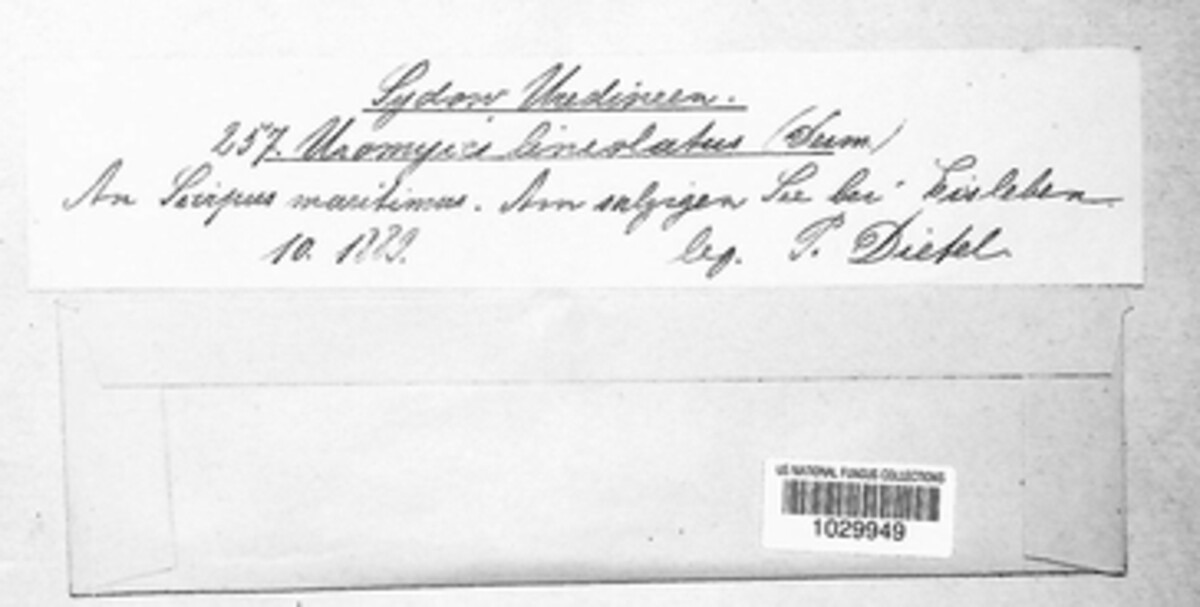 Sydow Uredineen.
257. Uromyces lineolatus (Desm)
An Scirpus maritimus. Am salzigen See bei Eisleben.
10. 1889. leg. P. Dietel
US NATIONAL FUNGUS COLLECTIONS
1029949